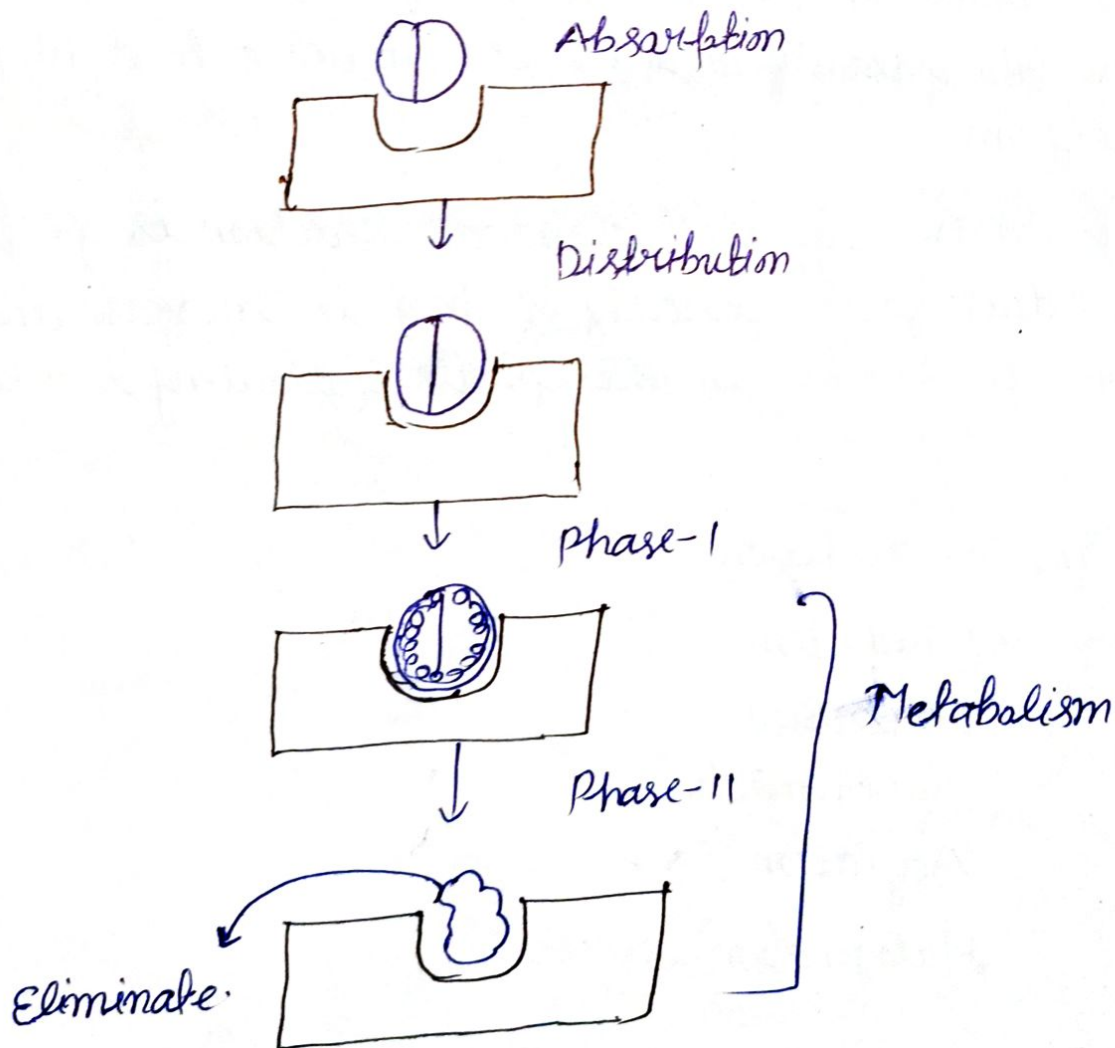 Absarption
Distribution
Phase-I
Metabalism
Phase-II
Eliminate.